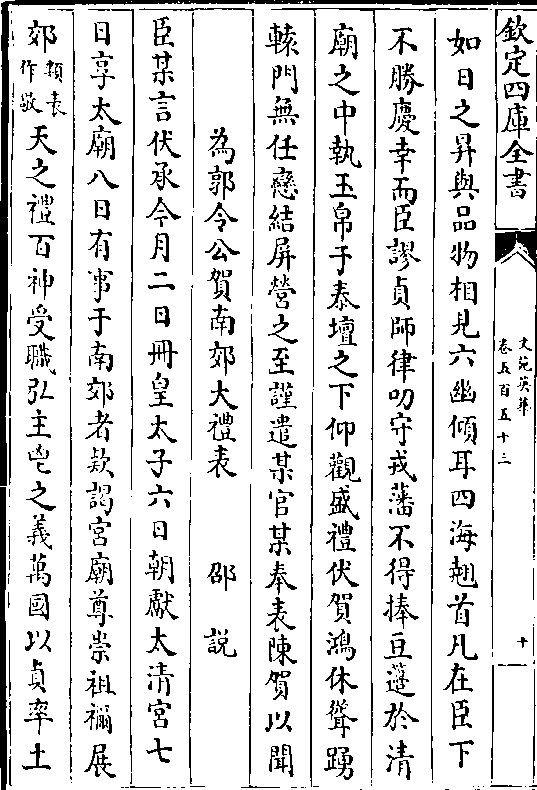 欽定四庫全書
文苑英華
卷五百五十三
十
如日之昇與品物相見六幽傾耳四海翹首凡在臣下
不勝慶幸而臣謬貞師律叨守戎藩不得捧豆籩於清
廟之中執玉帛于泰壇之下仰觀盛禮伏賀鴻休聳踴
轅門無任戀結屏營之至謹遣某官某奉表陳賀以聞
為郭令公賀南郊大禮表　邵說
臣某言伏承今月二日冊皇太子六日朝獻太清宮七
日享太廟八日有事于南郊者欵謁宮廟尊崇祖禰展
郊類表作敬天之禮百神受職弘主鬯之義萬國以貞率土